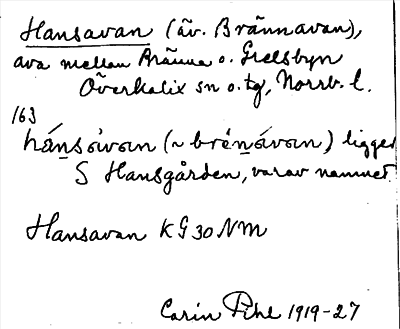 Hansavan (äv. Brännavan),
ava mellan Bränna o. Grelsbyn
Överkalix sn o. tg, Norrb. l.
163
hánsávan (~ brénávan) ligger
S Hansgården, varav namnet.
Hansavan KG 30 NM
Carin Pihl 1919-27